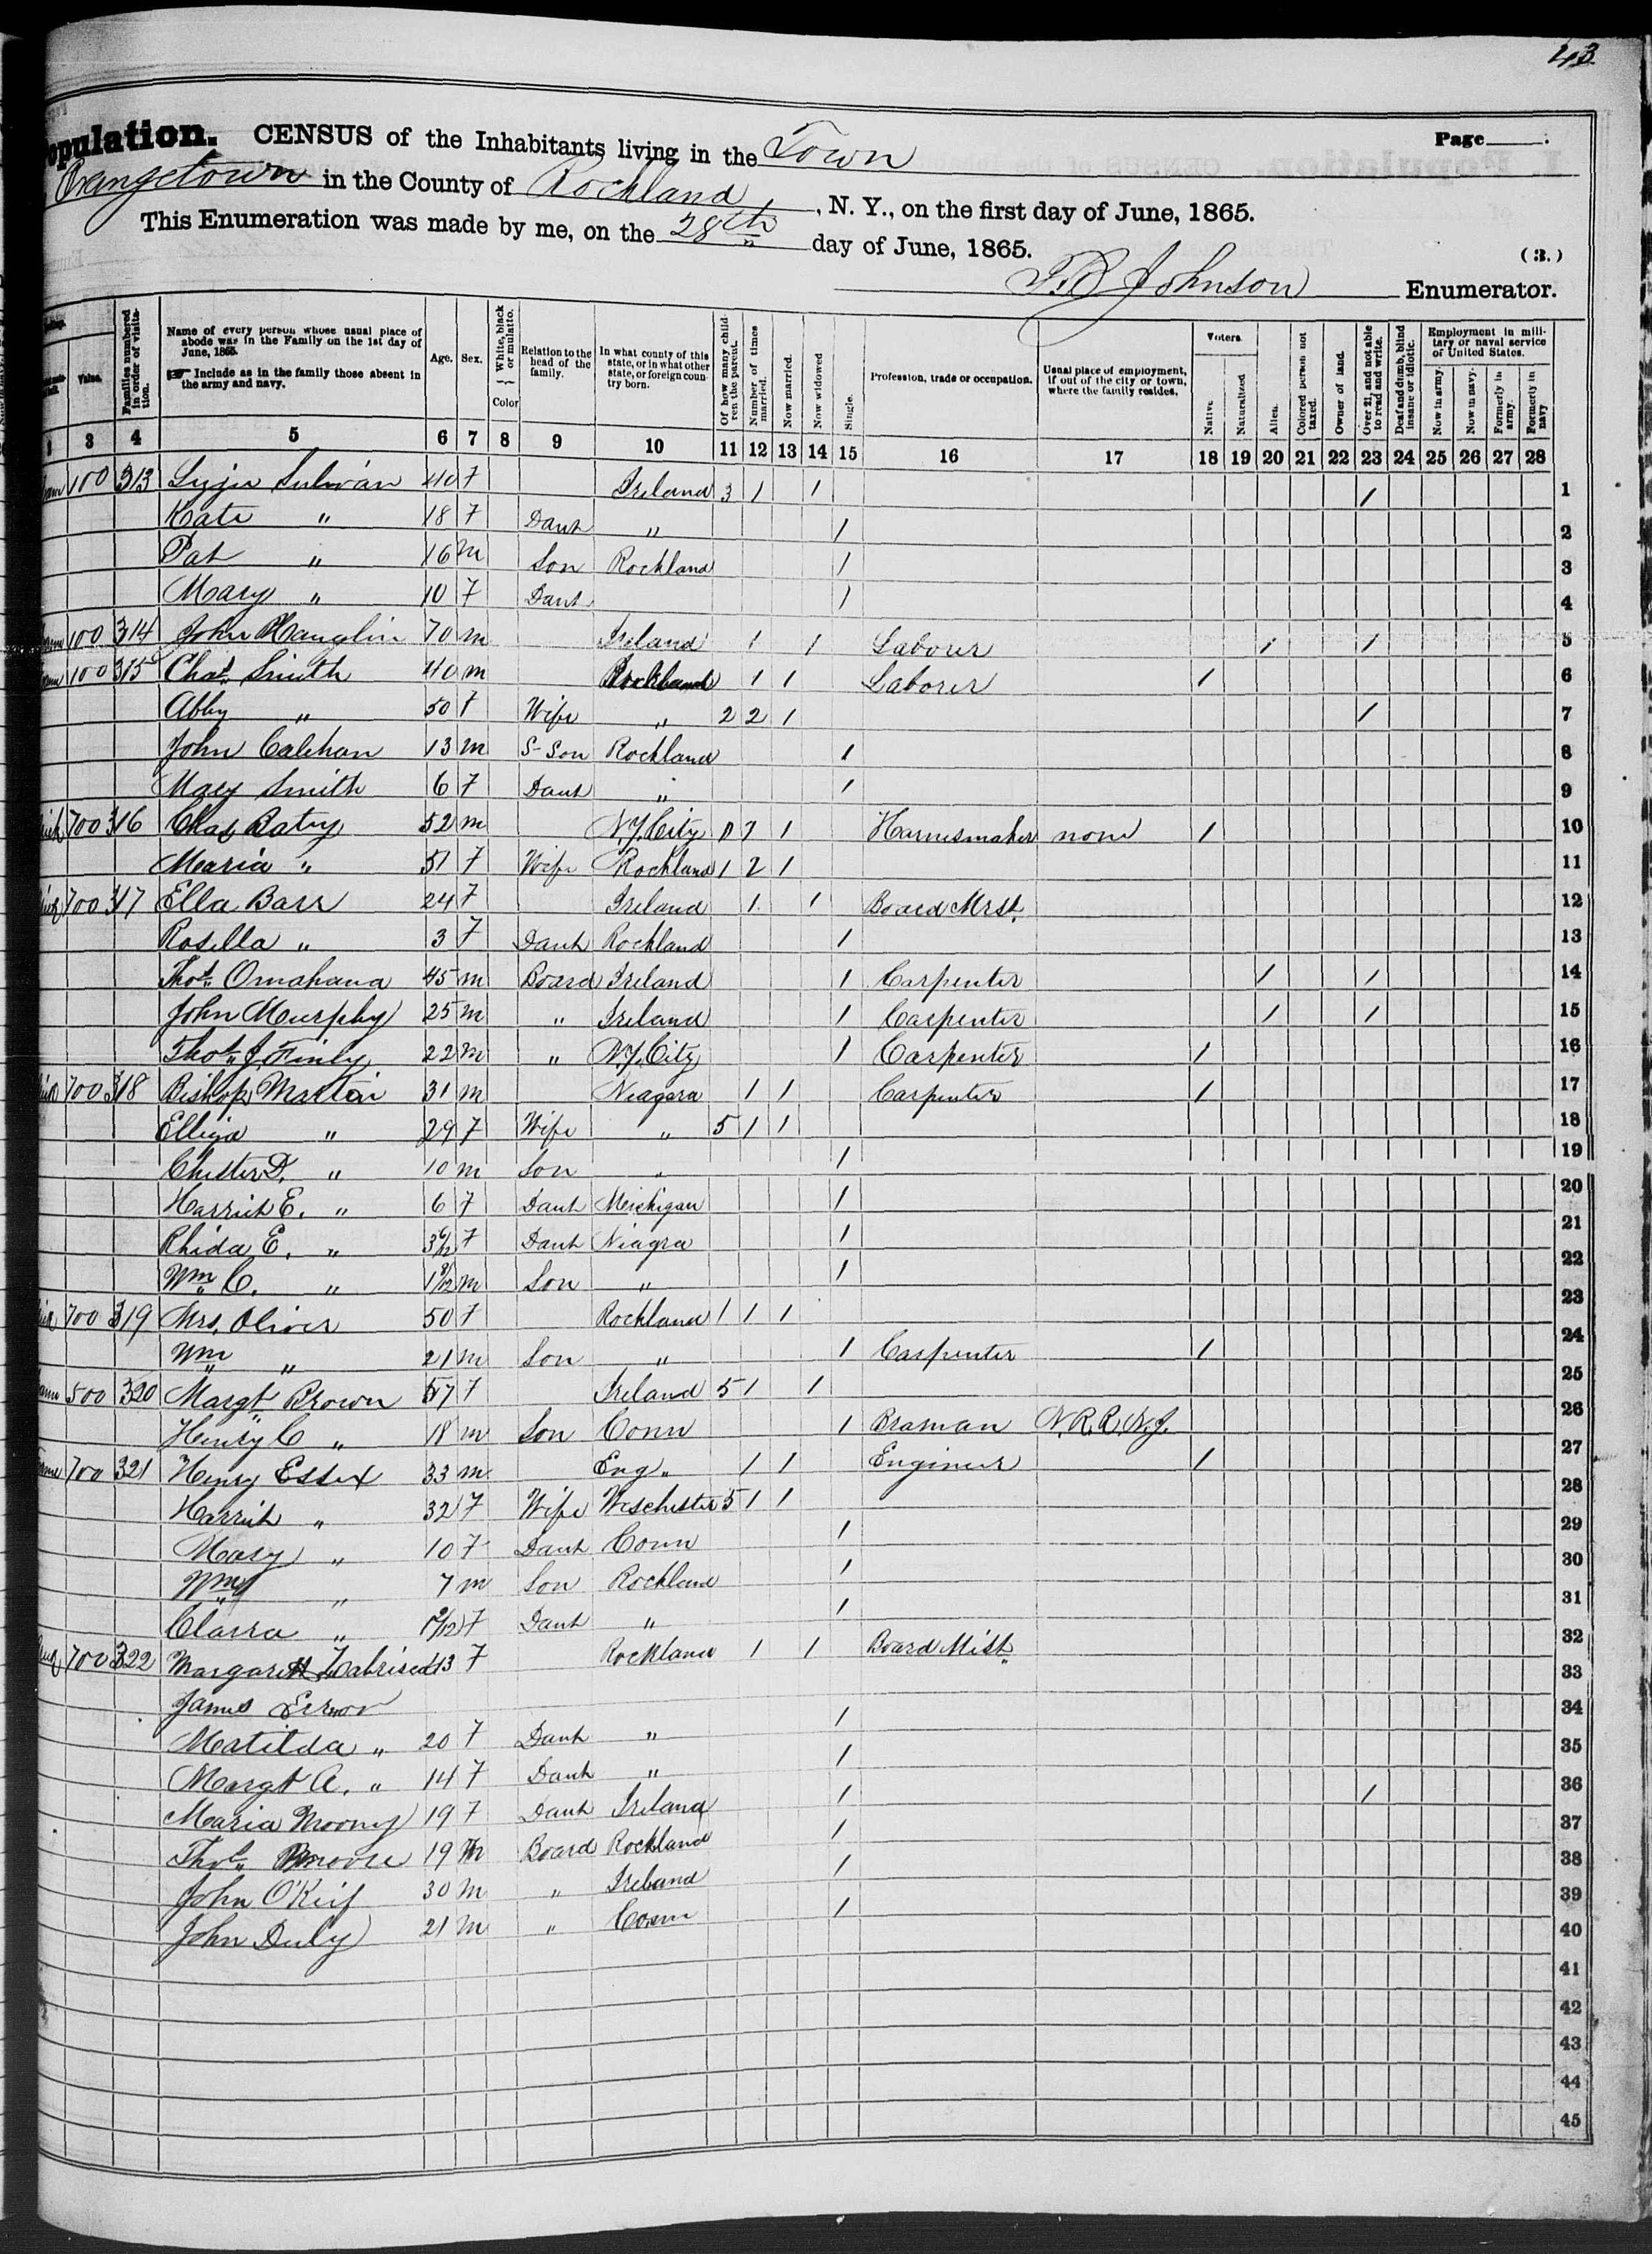 43
Population. CENSUS of the Inhabitants living in the Town Page
Orangetown in the County of Rockland, N. Y., on the first day of June, 1865.
This Enumeration was made by me, on the 28th day of June, 1865.
(3.)
Johnson Enumerator.
Value. Families numbered in order of visitation. Name of every person whose usual place of abode was in the Family on the 1st day of June, 1865. Include as in the family those absent in the army and navy. Age. Sex. White, black or mulatto. Color Relation to the head of the family. In what county of this state, or in what other state, or foreign country born. Of how many children the parent. Number of times married. Now married. Now widowed Single. Profession, trade or occupation. Usual place of employment, if out of the city or town, where the family resides. Voters. Native. Naturalized. Alien. Colored person not taxed. Owner of land. Over 21, and not able to read and write. Deaf and dumb, blind insane or idiotic. Employment in military or naval service of United States. Now in army. Now in navy. Formerly in army. Formerly in navy
3 4 5 6 7 8 9 10 11 12 13 14 15 16 17 18 19 20 21 22 23 24 25 26 27 28
100 313 Sulivan 40 F Ireland 3 1 1 1 1
Kate " 18 F Daut " 1 2
Pat " 16 M Son Rockland 1 3
Mary " 10 F Daut 1 4
100 314 John 70 M Ireland 1 1 Labourer 1 1 5
100 315 Chas Smith 40 M Rockland 1 1 Laborer 1 6
Abby " 50 F Wife " 2 2 1 1 7
John Calihan 13 M S-Son Rockland 1 8
Mary Smith 6 F Daut " 1 9
700 316 Chas Baty 52 M N.Y. City 1 Harnismaker none 1 10
Maria " 51 F Wife Rockland 1 2 1 11
700 317 Ella Barr 24 F Ireland 1 1 Board Mrst. 12
Rosella " 3 F Daut Rockland 1 13
Thos Omahana 45 M Board Ireland 1 Carpenter 1 1 14
John Murphy 25 M " Ireland 1 Carpenter 1 1 15
Thos J. Finly 22 M " N.Y. City 1 Carpenter 1 16
700 318 Bishop Martin 31 M Niagara 1 1 Carpenter 1 17
Elliza " 29 F Wife " 5 1 1 18
Chester D. " 10 M Son " 1 19
Harriet E. " 6 F Daut Michigan 1 20
Rhida E. " 3 6/12 F Daut Niagra 1 21
Wm C. " 1 8/12 M Son " 1 22
700 319 Mrs. Oliver 50 F Rockland 1 1 1 23
Wm " 21 M Son " 1 Carpenter 1 24
500 320 Margt Brown 57 F Ireland 5 1 1 25
Henry C " 18 M Son Conn 1 Braman N.R.R. N.J. 26
700 321 Henry Essex 33 M Eng. 1 1 Engineer 1 27
Harriet " 32 F Wife Weschester 5 1 1 28
Mary " 10 F Daut Conn 1 29
Wm " 7 M Son Rockland 1 30
Clarra " F Daut " 1 31
700 322 Margarett 43 F Rockland 1 1 Board Mist. 32
James 33
Matilda " 20 F Daut " 1 34
Margt A. " 14 F Daut " 1 35
Maria Moony 19 F Daut Ireland 1 1 36
Thos Moore 19 M Board Rockland 1 37
John O'Keif 30 M " Ireland 1 38
John Duly 21 M " Conn 1 39
40
41
42
43
44
45